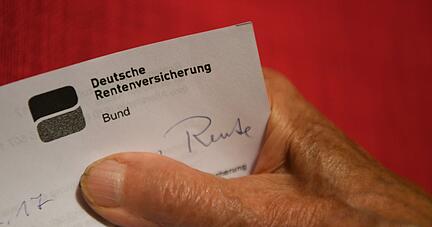 Deutsche
Rentenversicherung
Bund
Rente
17